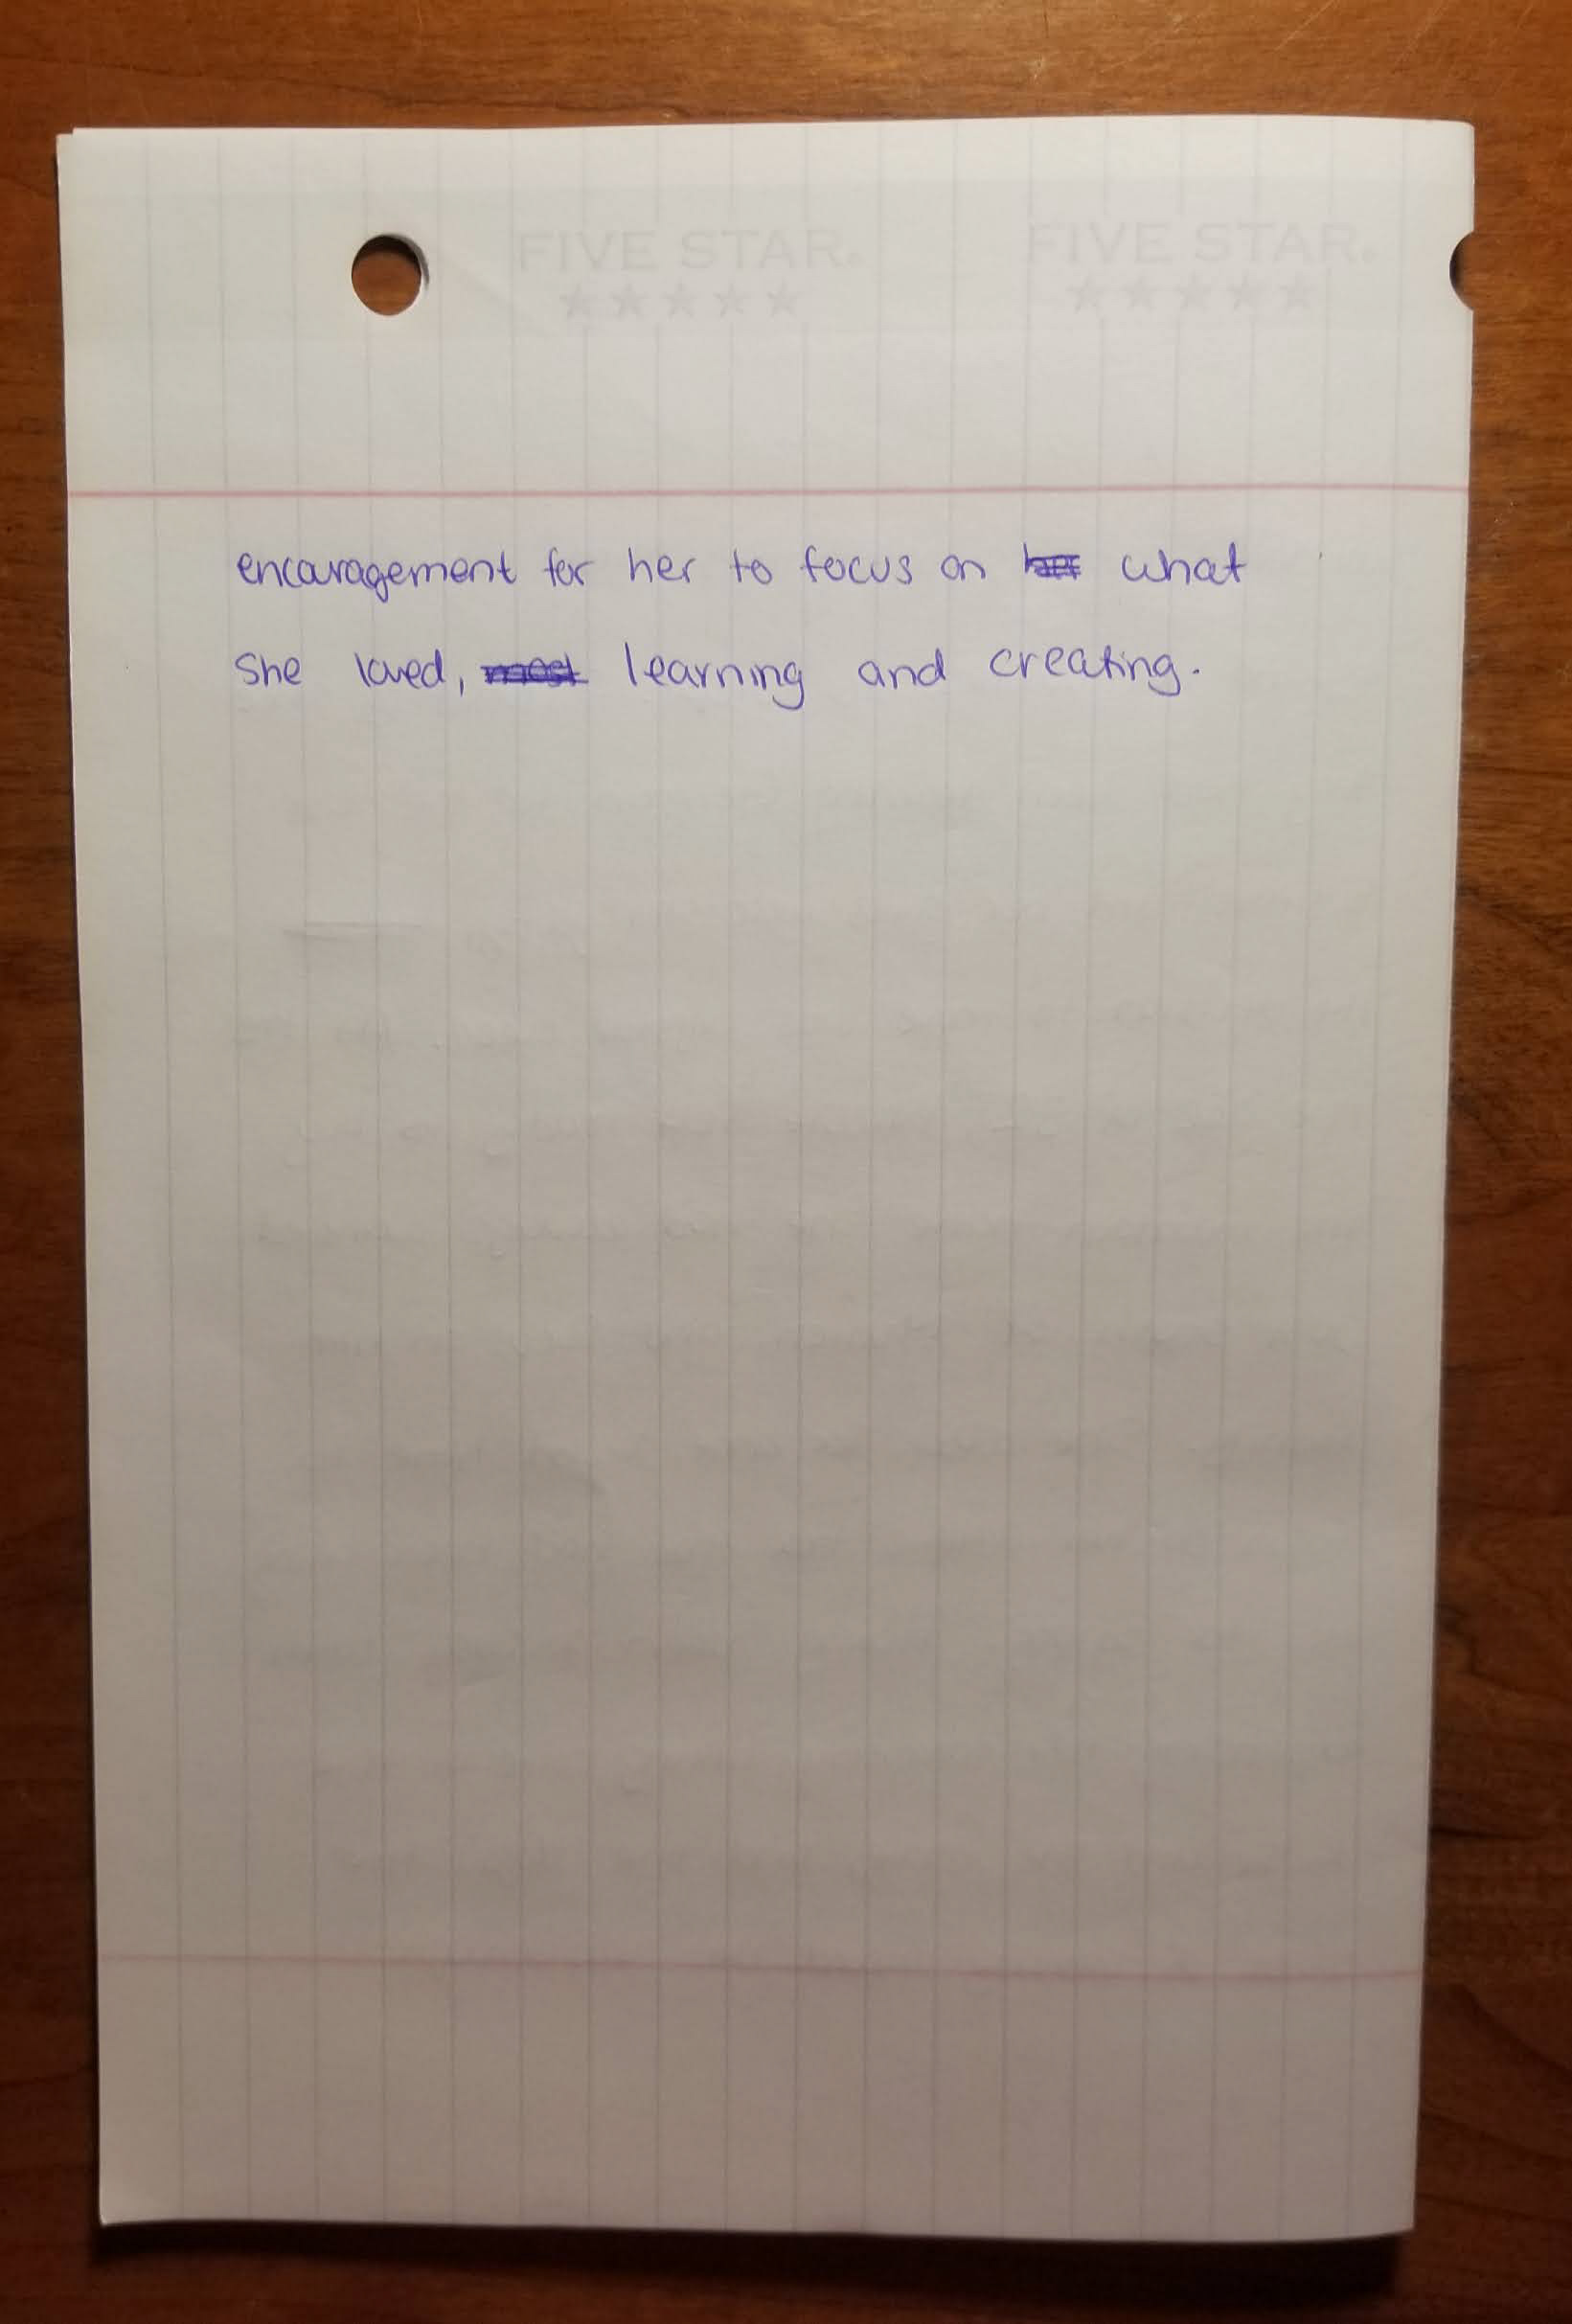 FIVE STAR. FIVE STAR.
★★★★★ ★★★★★
encouragement for her to focus on her what
She loved, most learning and creating.